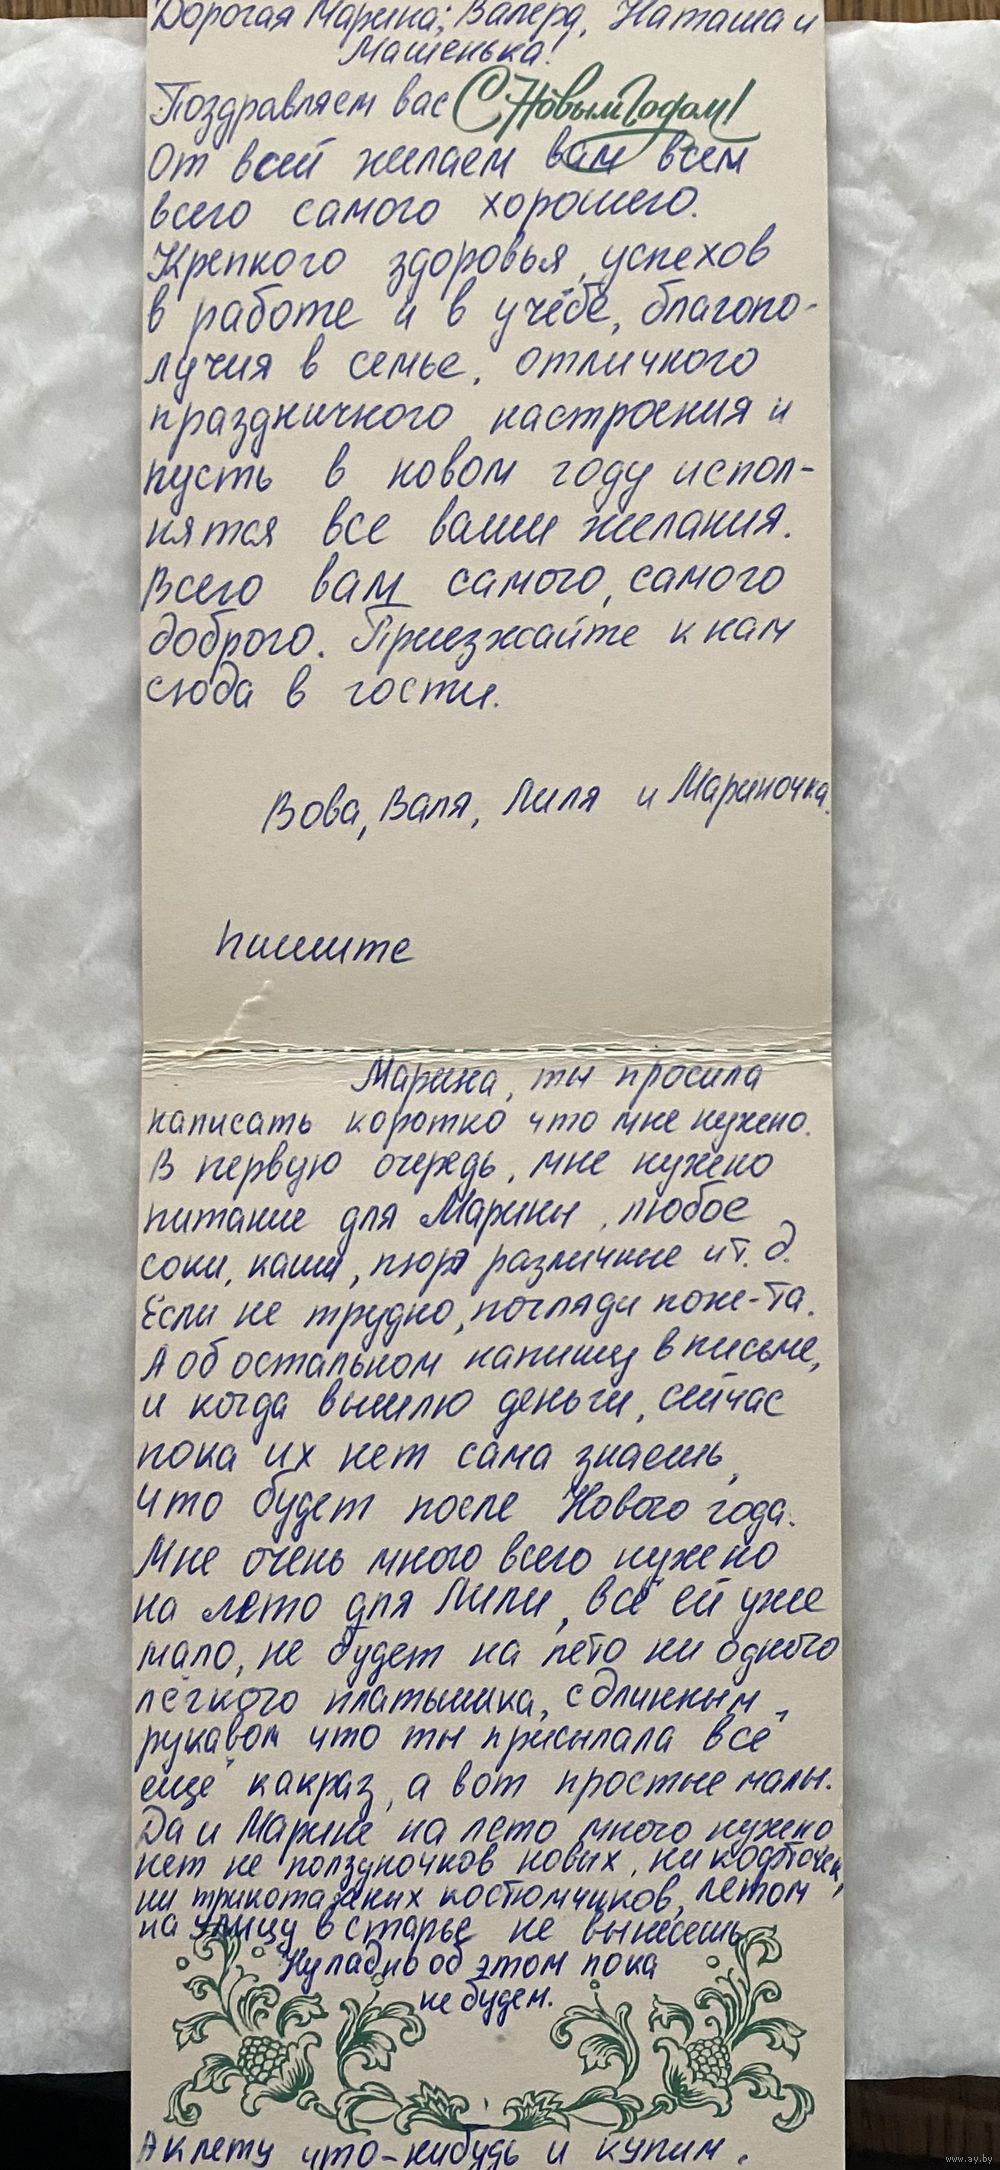 Дорогая Марина, Валера, Наташа и
Машенька!
Поздравляем вас С Новым Годом!
От всей желаем вам всем
всего самого хорошего.
Крепкого здоровья, успехов
в работе и в учёбе, благопо-
лучия в семье, отличного
праздничного настроения и
пусть в новом году испол-
нятся все ваши желания.
Всего вам самого, самого
доброго. Приезжайте к нам
сюда в гости.
Вова, Валя, Лиля и Мариночка.
Пишите
Марина, ты просила
написать коротко что мне нужно.
В первую очередь, мне нужно
питание для Марины, любое
соки, каши, пюре различные и т. д.
Если не трудно, погляди
А об остальном напишу в письме,
и когда вышлю деньги, сейчас
пока их нет сама знаешь,
что будет после Нового года.
Мне очень много всего нужно
на лето для Лили, всё ей уже
мало, не будет на лето ни одного
лёгкого платьишка, с длинным
рукавом что ты присылала всё
ещё как раз, а вот простые малы.
Да и Марине на лето много нужно
нет не ползуночков новых, ни кофточек,
ни трикотажных костюмчиков, летом
на улицу в старье не вынесешь
Ну ладно об этом пока
не будем.
А к лету что-нибудь и купим.
www.ay.by